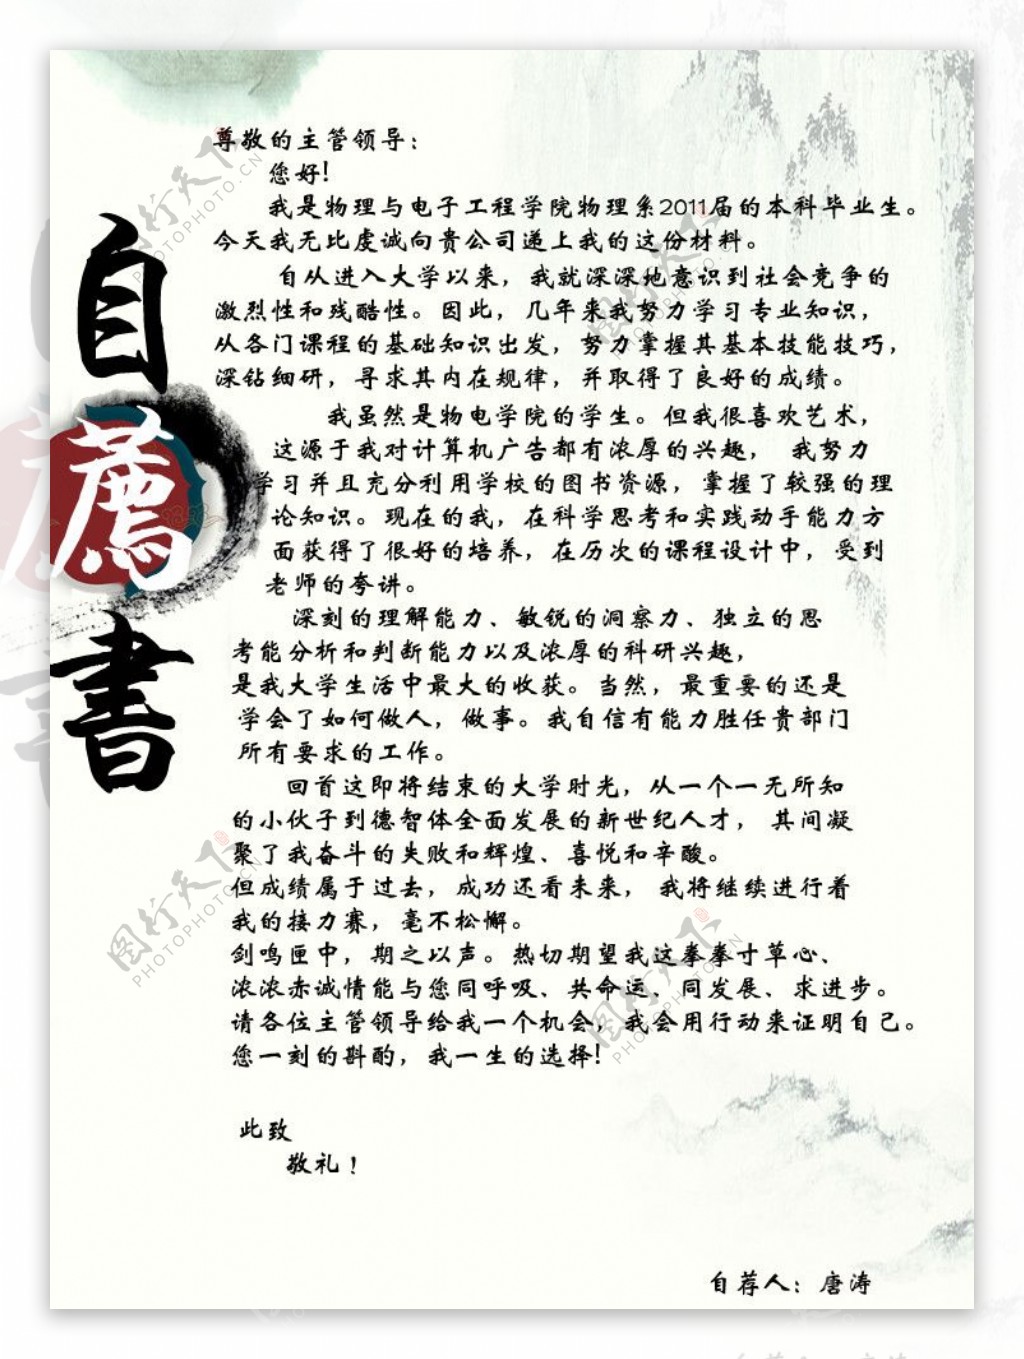 自薦書
尊敬的主管领导：
您好！
我是物理与电子工程学院物理系2011届的本科毕业生。
今天我无比虔诚向贵公司递上我的这份材料。
自从进入大学以来，我就深深地意识到社会竞争的
激烈性和残酷性。因此，几年来我努力学习专业知识，
从各门课程的基础知识出发，努力掌握其基本技能技巧，
深钻细研，寻求其内在规律，并取得了良好的成绩。
我虽然是物电学院的学生。但我很喜欢艺术，
这源于我对计算机广告都有浓厚的兴趣， 我努力
学习并且充分利用学校的图书资源，掌握了较强的理
论知识。现在的我，在科学思考和实践动手能力方
面获得了很好的培养，在历次的课程设计中，受到
老师的夸讲。
深刻的理解能力、敏锐的洞察力、独立的思
考能分析和判断能力以及浓厚的科研兴趣，
是我大学生活中最大的收获。当然，最重要的还是
学会了如何做人，做事。我自信有能力胜任贵部门
所有要求的工作。
回首这即将结束的大学时光，从一个一无所知
的小伙子到德智体全面发展的新世纪人才， 其间凝
聚了我奋斗的失败和辉煌、喜悦和辛酸。
但成绩属于过去，成功还看未来， 我将继续进行着
我的接力赛，毫不松懈。
剑鸣匣中，期之以声。热切期望我这拳拳寸草心、
浓浓赤诚情能与您同呼吸、共命运、同发展、求进步。
请各位主管领导给我一个机会，我会用行动来证明自己。
您一刻的斟酌，我一生的选择!
此致
敬礼！
自荐人：唐涛
图行天下
PHOTOPHOTO.CN
图行天下
PHOTOPHOTO.CN
图行天下
PHOTOPHOTO.CN
图行天下
PHOTOPHOTO.CN